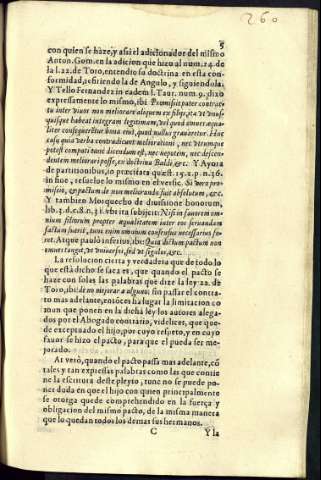 260
5
con quien se haze, y assi el adicionador del mismo
Anton. Gom. en la adicion que hizo al num. 24. de
la l. 22. de Toro, entendio su doctrina en esta con-
formidad, refiriendo la de Angulo, y siguiendola.
Y Tello Fernandez in eadem l. Taur. num. 9. dixo
expressamente lo mismo, ibi: Promissis pater contrac-
tu inter vivos non meliorare aliquem ex filijs, ita vt vnus-
quisque habeat integram legitimam, vel quod omnes aqua-
liter consequentur bona eius, quod nullus gravaretur. Hoc
casu quia verba contradicunt meliorationi, nec vtrumque
potest compati tunc dicendum est, nec nepotem, nec descen-
dentem meliorari posse, ex doctrina Baldi, &c. Y Ayora
de partitionibus, in præctica quæst. 19. 2. p. n. 36.
in fine, resuelve lo mismo en el versic. Si vero pro-
missio, & pactum de non meliorando fuit absolutum, &c.
Y tambien Morquecho de divisione bonorum,
lib. 3. d. c. 8. n. 31. vbi ita subijcit: Nisi in favorem om-
nium filiorum propter æqualitatem inter eos servandam
pactum fuerit, tunc enim omnium consensus necessarius fo-
ret. Atque pauló inferius, ibi: Quia dictum pactum non
omnes tangit, vt vniversi, sed vt singulos, &c.
La resolucion cierta y verdadera que de todo lo
que está dicho se saca es, que quando el pacto se
haze con solas las palabras que dize la ley 22. de
Toro, ibi: de no mejorar a alguno: sin passar el contra-
to mas adelante, entõces ha lugar la limitacion co
mun que ponen en la dicha ley los autores alega-
dos por el Abogado contrario, videlicet, que que-
de exceptuado el hijo, por cuyo respeto, y en cuyo
favor se hizo el pacto, para que el pueda ser me-
jorado.
At verò, quando el pacto passa mas adelante, cõ
tales y tan expressas palabras como las que contie
ne la escritura deste pleyto, tunc no se puede po-
ner duda en que el hijo con quien principalmente
se otorga quede comprehendido en la fuerça y
obligacion del mismo pacto, de la misma manera
que lo quedan todos los demas sus hermanos.
C Y la